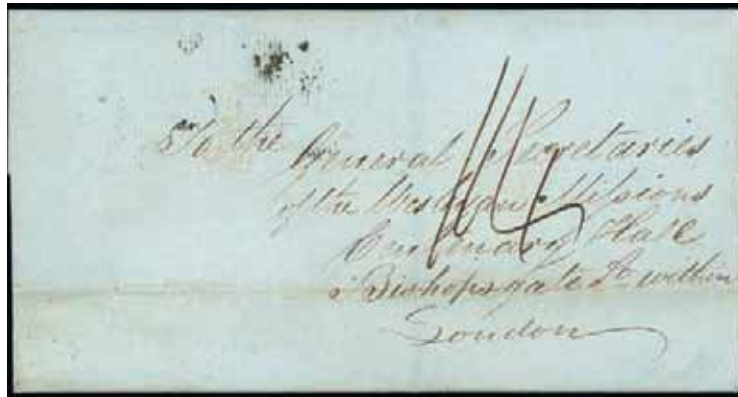 To the General Secretaries
of the Wesleyan Missions
Centenary Hall
Bishopsgate St within
London